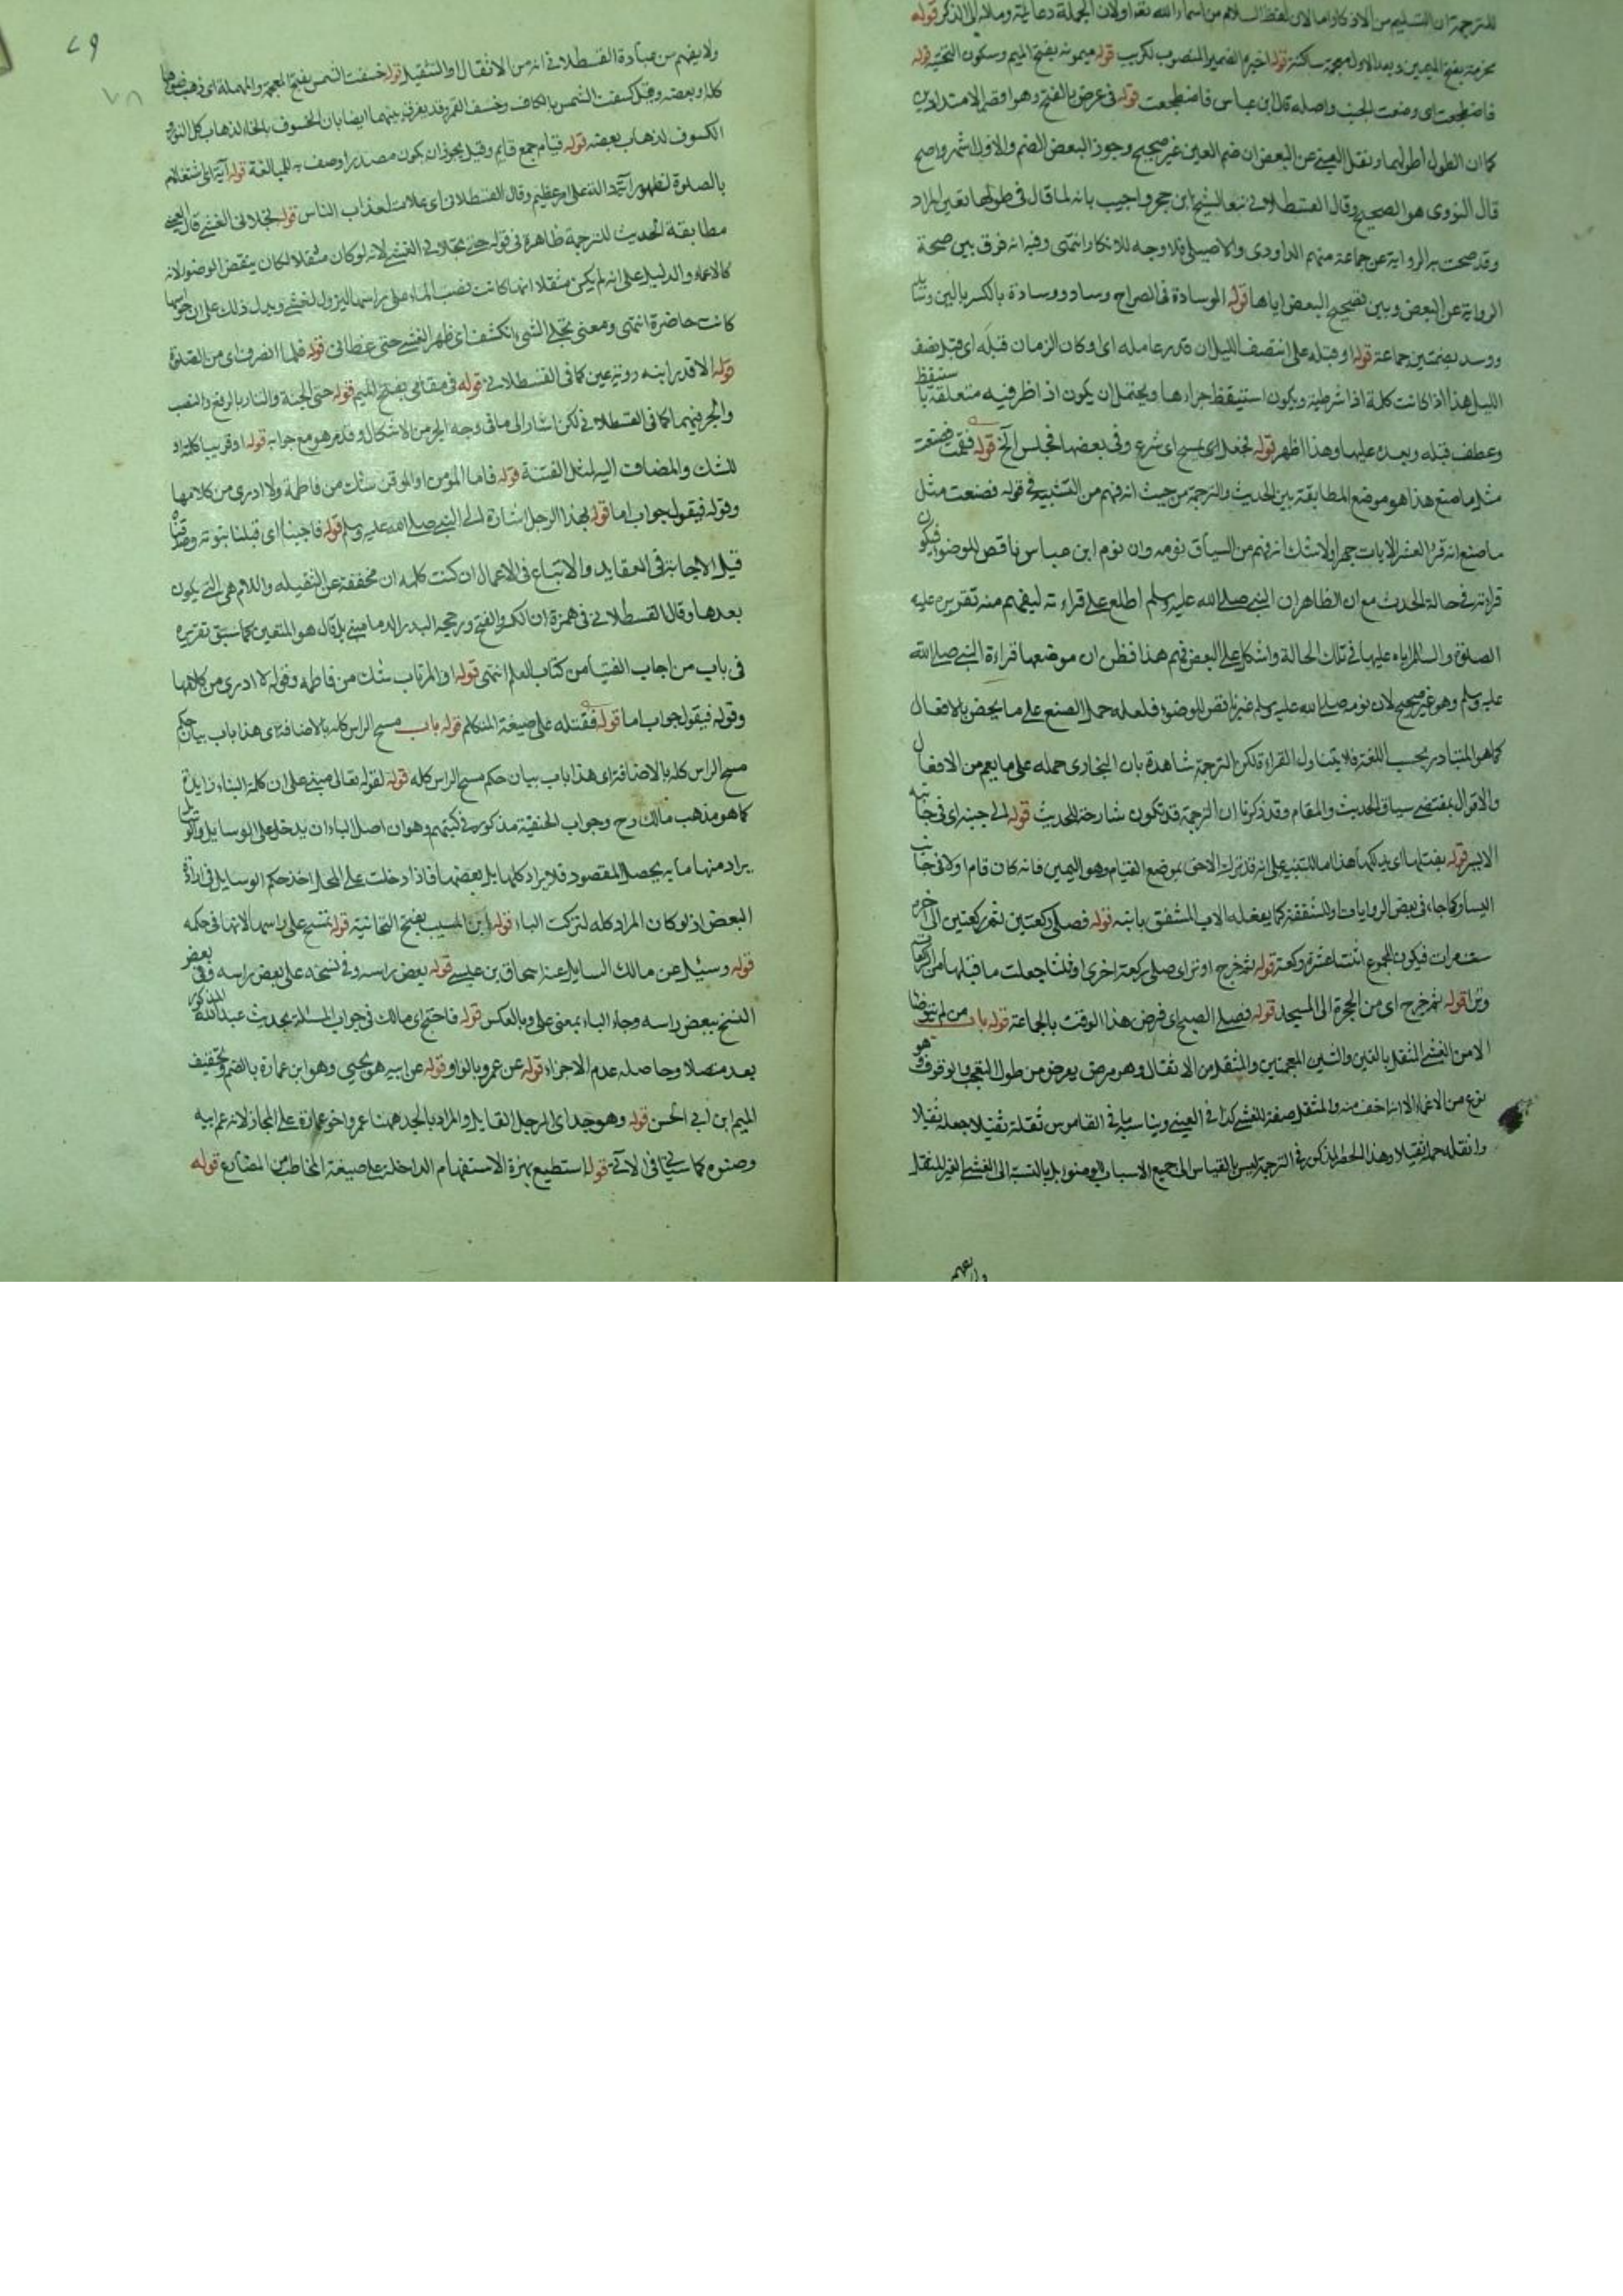 للترجمة ان التسليم من الاذكار اما لان لفظ السلام من اسماء الله تعالى او لان الجملة دعائية ومآله الى الذكر قوله
مخرمة بفتح الميمين وبعد الاولى معجمة ساكنة قوله اخبره الضمير المنصوب لكريب قوله ميمونة بفتح الميم وسكون التحتية قوله
فاضطجعت اى وضعت الجنب واصله قال ابن عباس فاضطجعت قوله فى عرض بالفتح وهو اقصر الامتدادين
كما ان الطول اطولهما ونقل العينى عن البعض ان ضم العين غير صحيح وجوز البعض الضم والاول اشهر واصح
قال النووى هو الصحيح وقال القسطلانى تبعا للشيخ ابن حجر واجيب بانه لما قال فى طولها تعين المراد
وقد صحت به الرواية عن جماعة منهم الداودى والاصيلى فلا وجه للانكار انتهى وفيه انه فرق بين صحة
الرواية عن البعض وبين تصحيح البعض اياها قوله الوسادة فى الصراح وساد ووسادة بالكسر بالين
ووسد بضمتين جماعة قوله او قبله على انتصف الليل ان قدر عامله اى او كان الزمان قبله اى قبل نصف
الليل هذا اذا كانت كلمة اذا شرطية ويكون استيقظ جزاءها ويحتمل ان يكون اذا ظرفية متعلقة باستيقظ
وعطف قبله وبعده عليها وهذا اظهر قوله فجعل اى يمسح اى شرع وفى بعضها فجلس الخ قوله فقمت فصنعت
مثل ما صنع هذا هو موضع المطابقة بين الحديث والترجمة من حيث انه فهم من التشبيه فى قوله فصنعت مثل
ما صنع انه قرأ العشر الايات جهرا ولا شك انه فهم من السياق نومه وان نوم ابن عباس ناقض للوضوء فيكون
قراءته فى حالة الحدث مع ان الظاهر ان النبى صلى الله عليه وسلم اطلع على قراءته ليفهم منه تقريره عليه
الصلوة والسلام اياه عليها فى تلك الحالة واشكل على البعض فهم هذا فظن ان موضعها قراءة النبى صلى الله
عليه وسلم وهو غير صحيح لان نومه صلى الله عليه وسلم غير ناقض للوضوء فلعله حمل الصنع على ما يخص بالافعال
كما هو المتبادر بحسب اللغة فلا يتناول القراءة لكن الترجمة شاهدة بان البخارى حمله على ما يعم من الافعال
والاقوال بمقتضى سياق الحديث والمقام وقد ذكرنا ان الترجمة قد تكون شارحة للحديث قوله الى جنبه اى فى جانبه
الايسر قوله يفتلها اى يدلكها هذا اما للتنبيه على انه قد ترك الاحق بموضع القيام وهو اليمين فانه كان قام اولا فى جانب
اليسار كما جاء فى بعض الروايات او للشفقة كما يفعله الاب المشفق بابنه قوله فصلى ركعتين ثم ركعتين الى اخره
ست مرات فيكون المجموع اثنتا عشرة ركعة قوله ثم خرج اوتر اى صلى ركعة اخرى او ثلثا جعلت ما قبلها من الركعات
وترا قوله ثم خرج اى من الحجرة الى المسجد قوله فصلى الصبح اى فرض هذا الوقت بالجماعة قوله باب من لم يتوضأ
الا من الغشى المثقل بالغين والشين المعجمتين والمثقل من الاثقال وهو مرض يعرض من طول التعب والوقوف وهو
نوع من الاغماء الا انه اخف منه والمثقل صفة للغشى كذا فى العينى ويناسبه ما فى القاموس ثقله تثقيلا جعله ثقيلا
واثقله حمله ثقيلا وهذا الحصر المذكور فى الترجمة ليس بالقياس الى جميع الاسباب للوضوء بل بالنسبة الى الغشى الغير المثقل
ولا يفهم
ولا يفهم من عبارة القسطلانى انه من الاثقال او التثقيل قوله خسفت الشمس بفتح المعجمة والمهملة اى ذهب ضوءها
كله او بعضه وقيل كسفت الشمس بالكاف وخسف القمر وقد يفرق بينهما ايضا بان الخسوف بالخاء لذهاب كل النور و
الكسوف لذهاب بعضه قوله قيام جمع قايم وقيل يجوز ان يكون مصدرا وصف به للمبالغة قوله آية اى اشتغالهم
بالصلوة لظهور آية دالة على امر عظيم وقال القسطلانى اى علامة لعذاب الناس قوله تجلانى الغشى قال العينى
مطابقة الحديث للترجمة ظاهرة فى قوله حتى تجلانى الغشى لانه لو كان مثقلا لكان ينقض الوضوء لانه
كالاغماء والدليل على انه لم يكن مثقلا انها كانت تصب الماء على راسها ليزول الغشى ويدل ذلك على ان حواسها
كانت حاضرة انتهى ومعنى تجلى الشىء انكشف اى ظهر الغشى حتى غطانى قوله فلما انصرف اى من الصلوة
قوله الا قد رايته روية عين كما فى القسطلانى قوله فى مقامى بفتح الميم قوله حتى الجنة والنار بالرفع والنصب
والجر فيهما كما فى القسطلانى لكن اشار الى ما فى وجه الجر من الاشكال وقد مر هو مع جوابه قوله او قريبا كلمة او
للشك والمضاف اليه لمثل الفتنة قوله فاما المؤمن او الموقن شك من فاطمة ولا ادرى من كلامها
وقوله فيقول جواب اما قوله بهذا الرجل اشارة الى النبى صلى الله عليه وسلم قوله فاجبنا اى قبلنا نبوته وصدقناه
قيل الاجابة فى العقايد والاتباع فى الاعمال ان كنت كلمة ان مخففة عن الثقيلة واللام هى التى يكون
بعدها وقال القسطلانى فى همزة ان الكسر والفتح ورجحه البدر الدمامينى بل قال هو المتعين كما سبق تقريره
فى باب من اجاب الفتيا من كتاب العلم انتهى قوله او المرتاب شك من فاطمه وقوله لا ادرى من كلامها
وقوله فيقول جواب اما قوله فقلته على صيغة المتكلم قوله باب مسح الراس كله بالاضافة اى هذا باب بيان حكم
مسح الراس كله بالاضافة اى هذا باب بيان حكم مسح الراس كله قوله لقوله تعالى مبنى على ان كلمة الباء زايدة
كما هو مذهب مالك رح وجواب الحنفية مذكور فى كتبهم وهو ان اصل الباء ان يدخل على الوسايل والوسايل
يراد منها ما به يحصل المقصود فلا يراد كلها بل بعضها فاذا دخلت على المحل اخذ حكم الوسايل فى ارادة
البعض اذ لو كان المراد كله لتركت الباء قوله ابن المسيب بفتح التحتانية قوله تمسح على راسها لانها فى حكمه
قوله وسئل عن مالك السايل عنه اسحاق بن عيسى قوله بعض راسه وفى نسخه على بعض راسه وفى بعض
النسخ ببعض راسه وجاء الباء بمعنى على وبالعكس قوله فاحتج اى مالك فى جواب المسئلة بحديث عبد الله المذكور
بعد متصلا وحاصله عدم الاجزاء قوله عن عمرو بالواو قوله عن ابيه هو يحيى وهو ابن عمارة بالضم وتخفيف
الميم ابن ابى الحسن قوله وهو جد اى الرجل القايل والمراد بالجد ههنا عمرو اخو عمارة على المجاز لانه عم ابيه
وصنوه كما سيجئ فى الاتى قوله استطيع بهمزة الاستفهام الداخلة على صيغة المخاطب من المضارع قوله